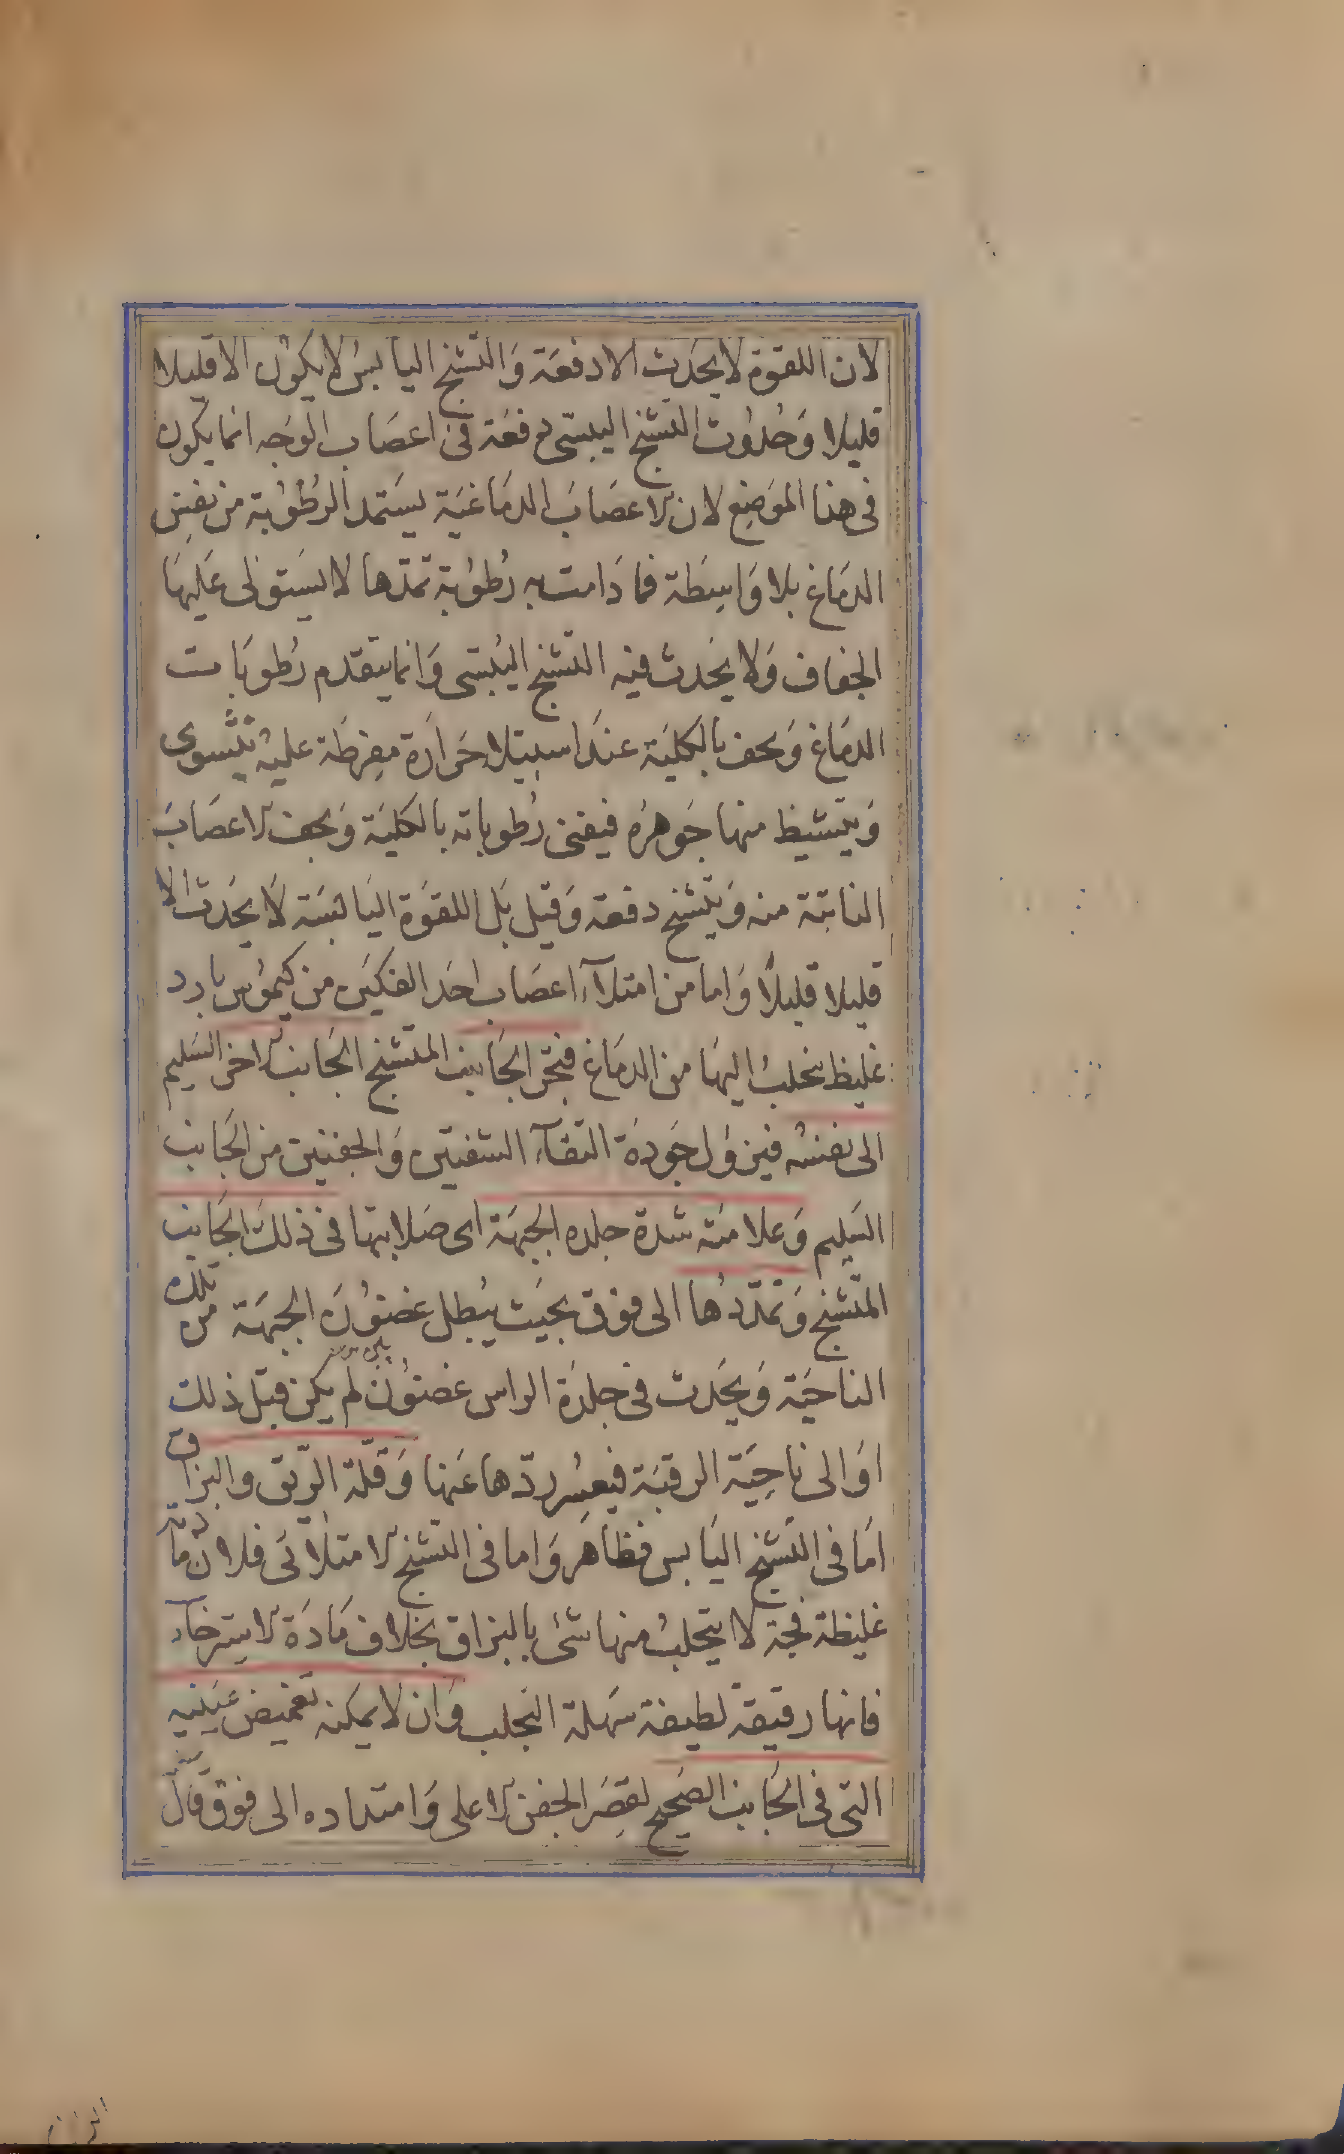 لان اللقوة لا يحدث الا دفعة وَالتشنج اليابس لا يكون الا قليلا
قليلا وَحدوث التشنج اليبسى دفعة فى اعصاب الوجه انما يكون
فى هذا الموضع لان الاعصاب الدماغية يستمد الرطوبة من نفس
الدماغ بلا واسطة فما دامت به رطوبة تمدها لا يستولى عليها
الجفاف ولا يحدث فيه التشنج اليبسى وانما يتقدم رطوبات
الدماغ ويجف بالكلية عند استيلاء حرارة مفرطة عليه
ويتشيط منها جوهره فيفنى رطوباته بالكلية ويجف الاعصاب
النابتة منه ويتشنج دفعة وقيل بل اللقوة اليابسة لا يحدث الا
قليلا قليلًا واما من امتلآء اعصاب احد الفكين من كيموس بارد
غليظ يتحلب اليها من الدماغ فيجر الجانب المتشنج الجانب الاخر السليم
الى نفسه فيزول جودة التقآء الشفتين والجفنين من الجانب
السليم وعلامته شدة جلده الجبهة اى صلابتها فى ذلك الجانب
المتشنج وتمددها الى فوق بحيث يبطل غضون الجبهة من تلك
الناحية ويحدث فى جلدة الراس غضون لم يكن قبل ذلك
او الى ناحية الرقبة فيعسر ردها عنها وقلة الريق والبزاق
اما فى التشنج اليابس فظاهر واما فى التشنج الامتلائى فلان مادته
غليظة فجة لا يتحلب منها شئ بالبزاق بخلاف مادة الاسترخآء
فانها رقيقة لطيفة سهلة التحلب وان لا يمكنه تغميض عينيه
التى فى الجانب الصحيح لقصر الجفن الاعلى وامتداده الى فوق قال